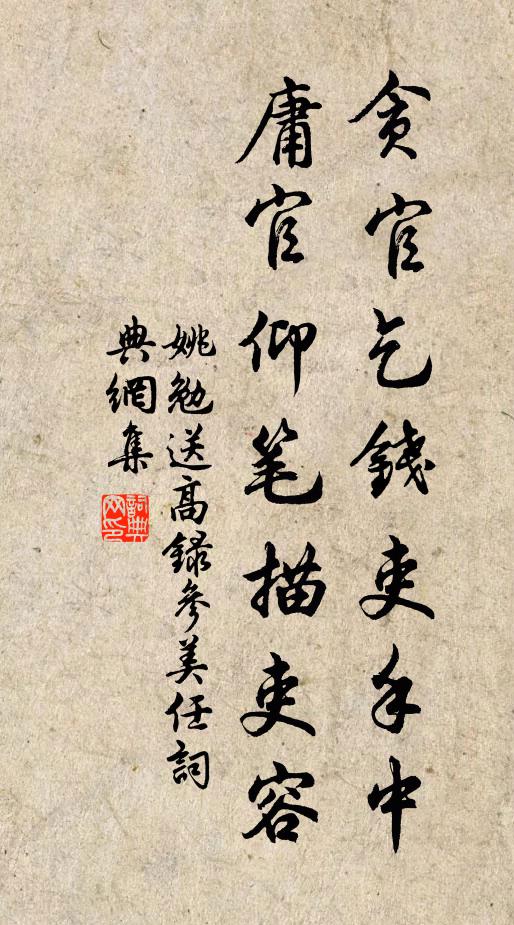 贪官乞錢吏手中
庸官仰笔描吏容
姚勉送高録參美任詞
典網集
詞典網印